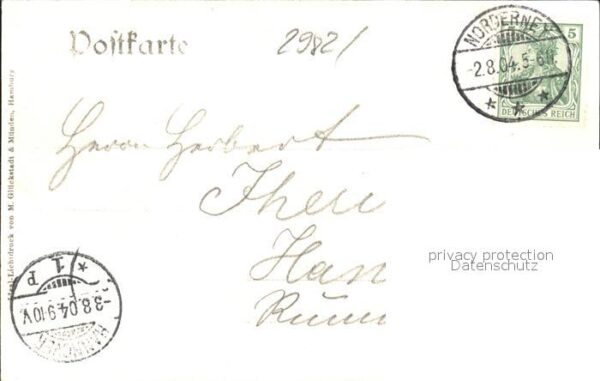 Postkarte
2982/
NORDERNEY
-2.8.04.5-6N.
5
DEUTSCHES REICH
Herrn Herbert
Han
privacy protection
Datenschutz
von M. Glückstadt & Münden, Hamburg
* 1 P
-3.8.04.9-10V.
HANNOVER